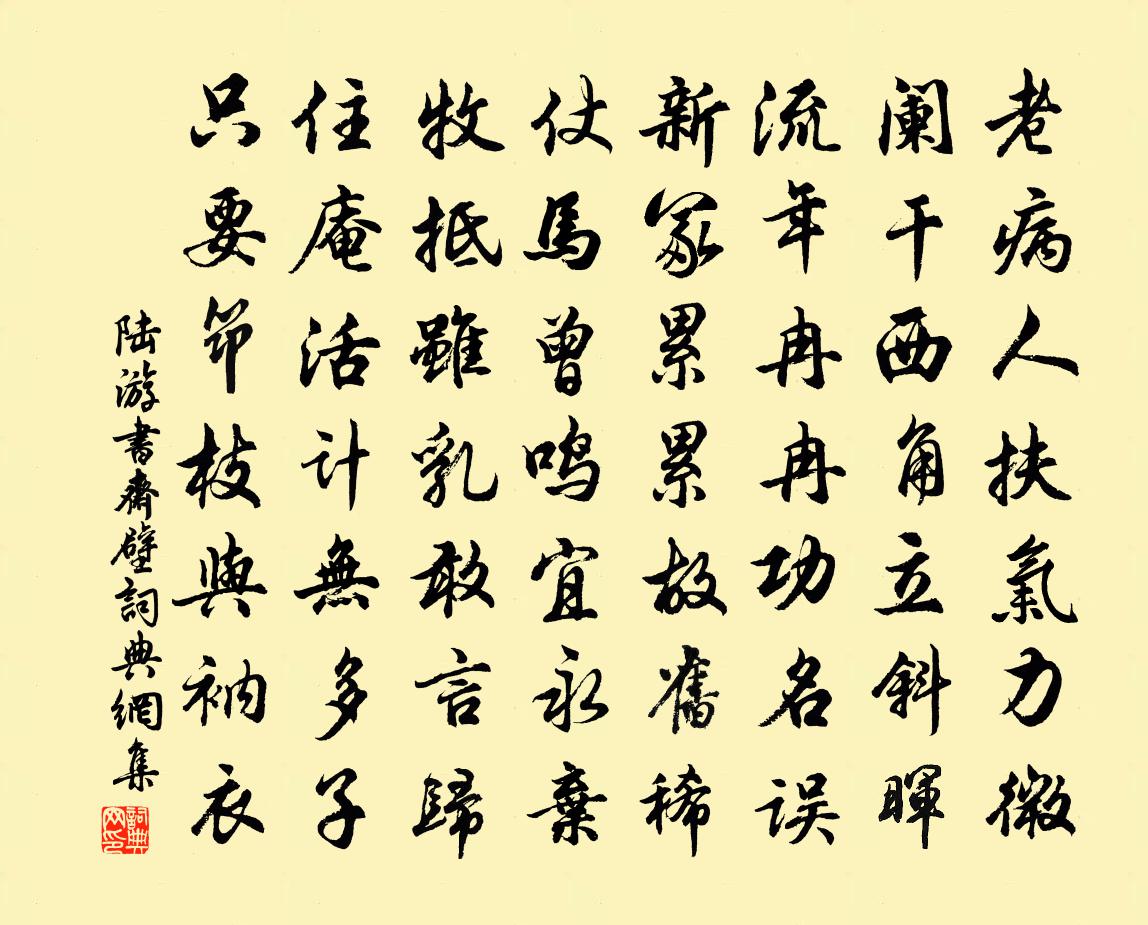 老病人扶氣力微
阑干西角立斜暉
流年冉冉功名误
新冢累累故舊稀
仗馬曾鸣宜永棄
牧抵雖乳敢言歸
住庵活計無多子
只要笻枝與衲衣
陆游書齋壁詞典網集
詞典
网印